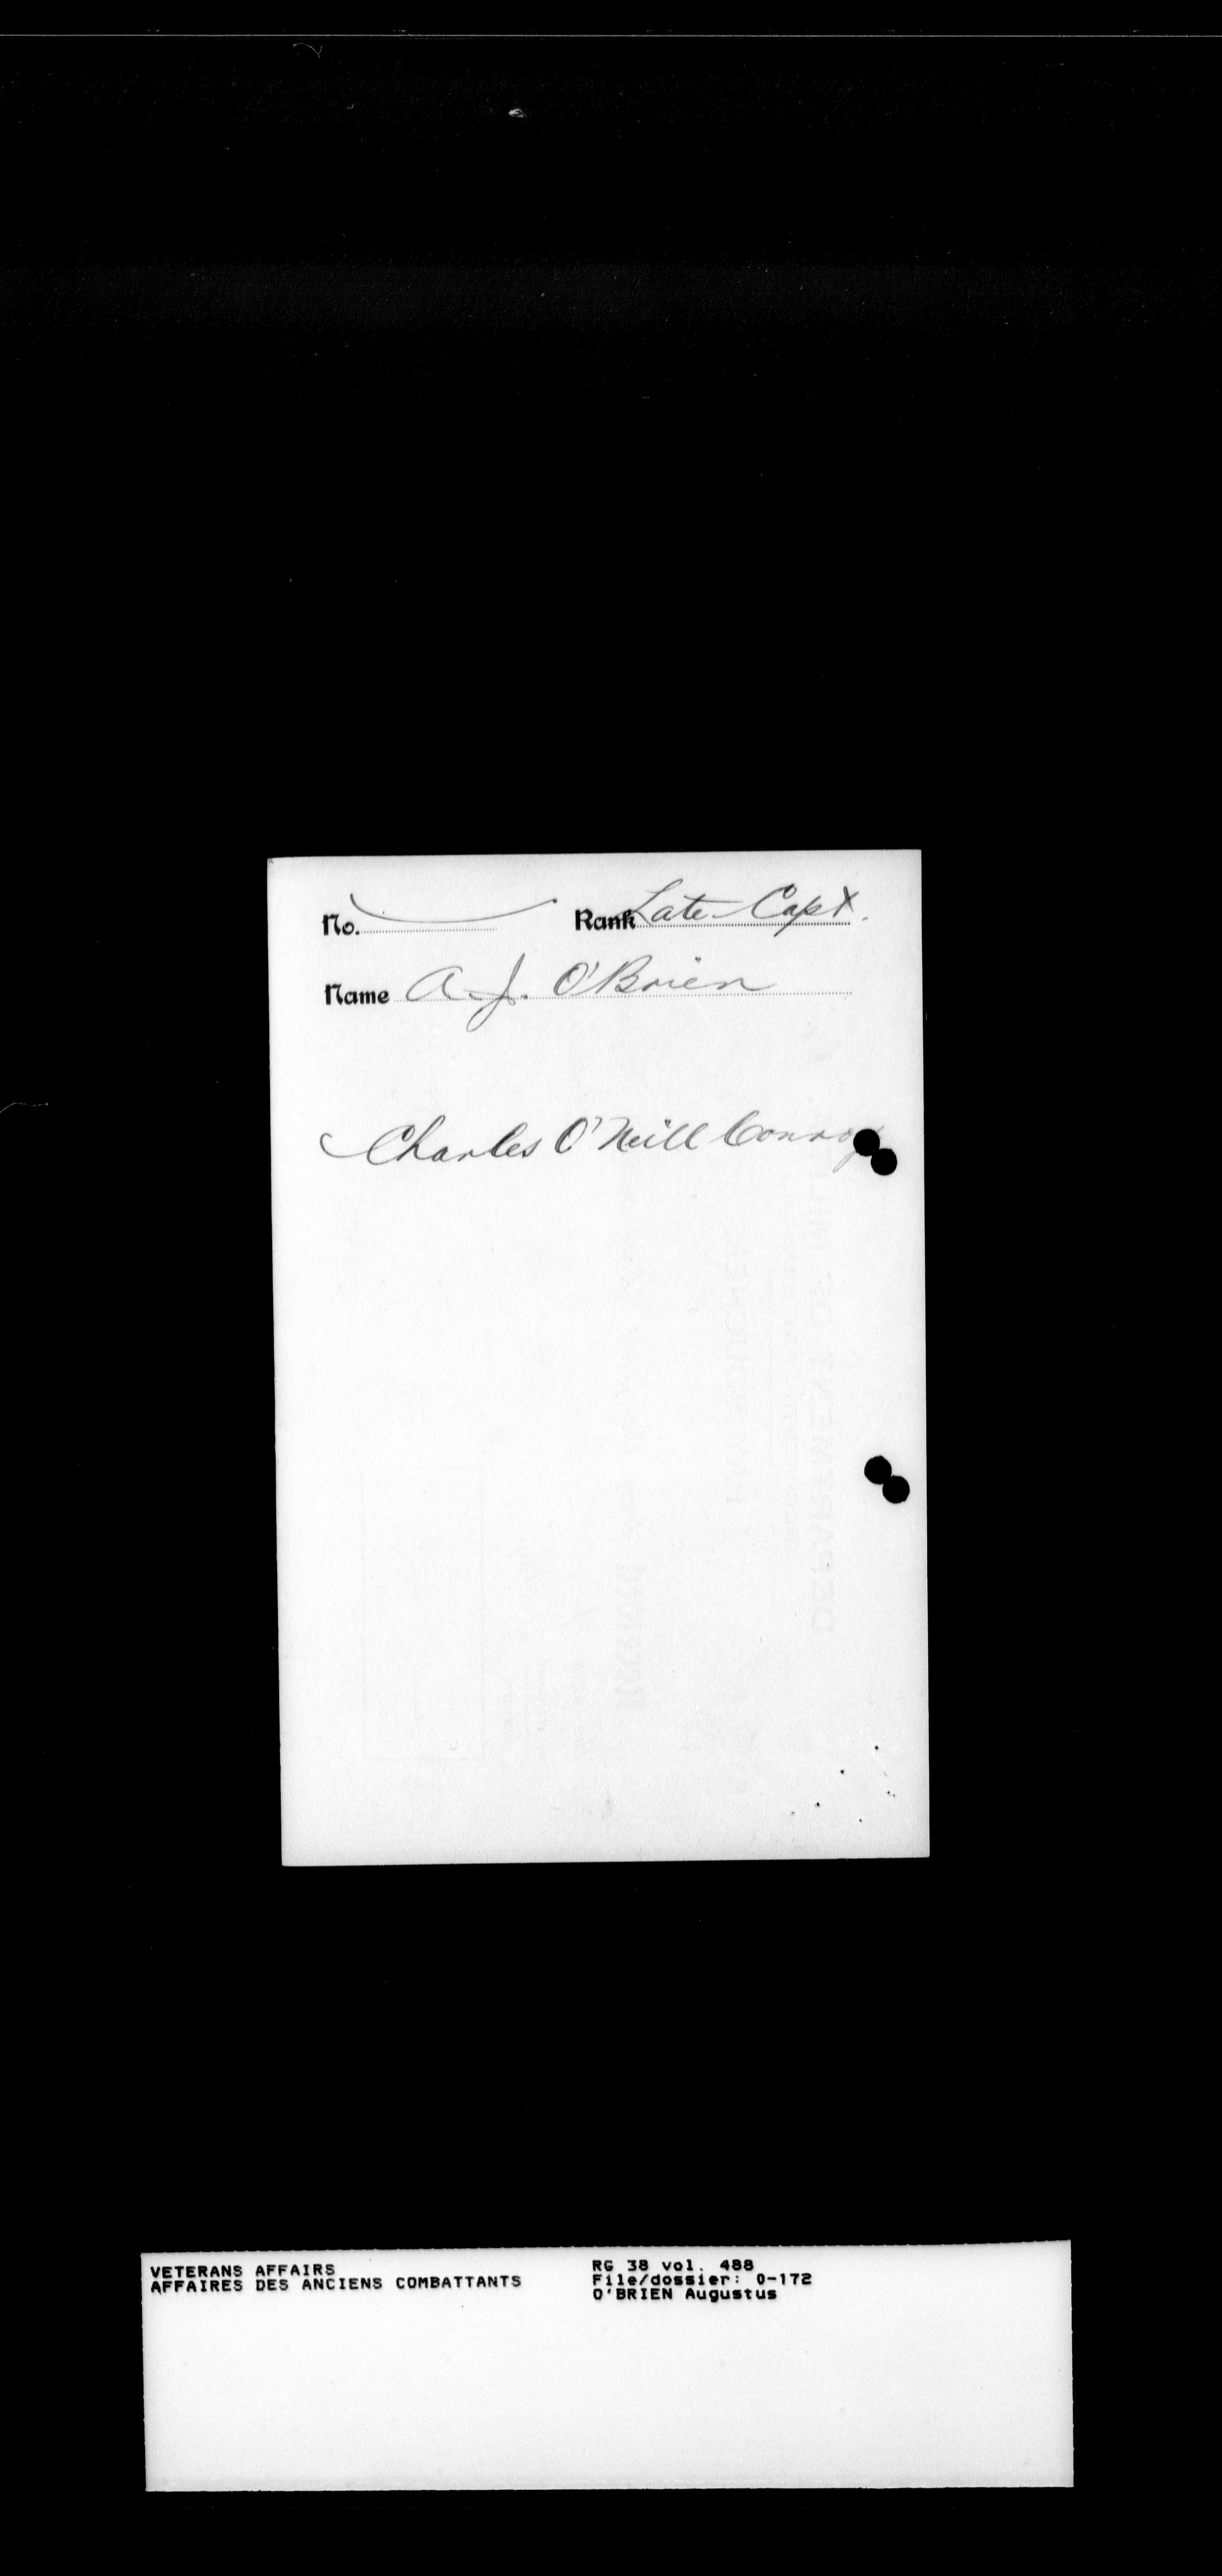 No. Rank Late Capt.
Name A. J. O'Brien
Charles O'Neill Conroy
VETERANS AFFAIRS
AFFAIRES DES ANCIENS COMBATTANTS
RG 38 vol. 488
File/dossier: O-172
O'BRIEN Augustus